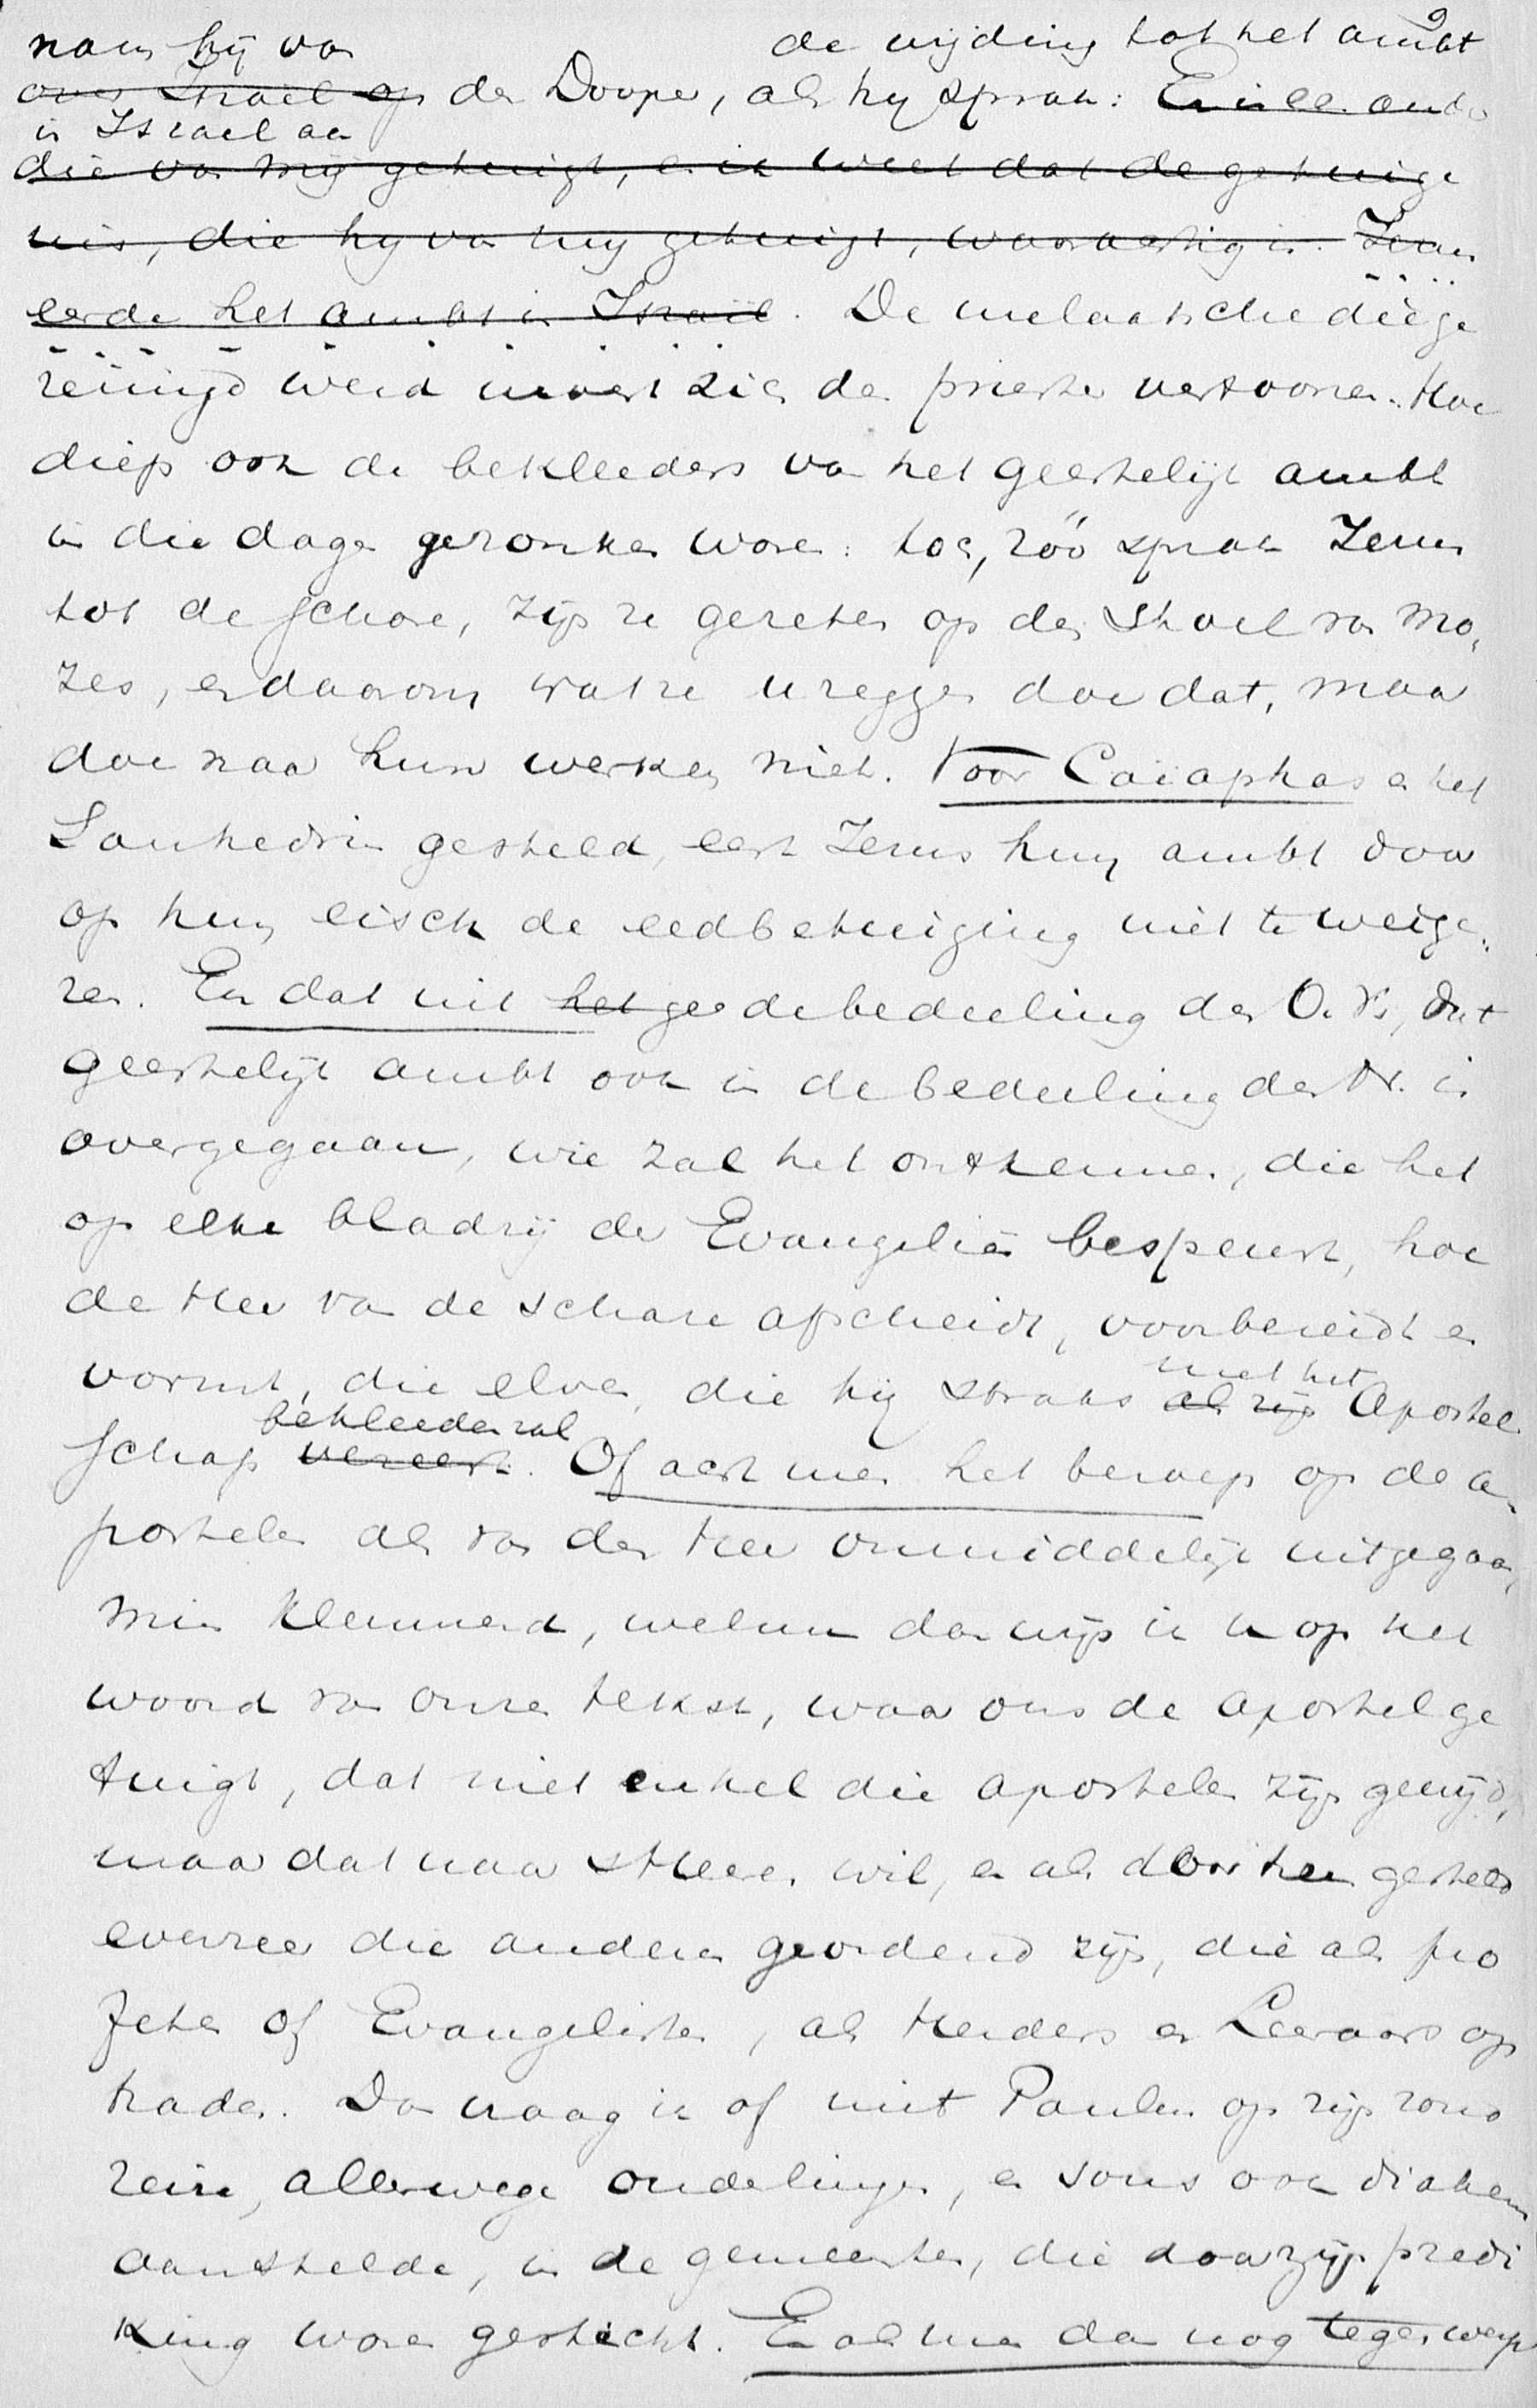 9
nam hij van de wijding tot het ambt
over Israël op den Dooper, als hij sprak: Er is een ander
in Israel aan
die van mij getuigt, en ik weet dat de getuige
nis, die hij van mij getuigt, waarachtig is. Jezus
eerde het ambt in Israël. De melaatsche die ge
reinigd werd moest zich den priester vertoonen. Hoe
diep ook de bekleeders van het geestelijk ambt
in die dagen gezonken waren: toch, zóó sprak Jezus
tot de schare, zijn ze gezeten op den stoel van Mo,
zes, en daarom wat ze u zeggen doe dat, maar
doe naar hun werken niet. Voor Caiaphas en het
Sanhedrin gesteld, eert Jezus hun ambt door
op hun eisch de eedbetuiging niet te weige,
ren. En dat uit het gee de bedeeling des O. V., dat
geestelijk ambt ook in de bedeeling des N. is
overgegaan, wie zal het ontkennen, die het
op elke bladzij der Evangeliën bespeurt, hoe
de Heer van de schare afscheidt, voorbereidt en
vormt, die elven, die hij straks als zijn met het Apostel
schap vereert. bekleeden zal Of acht men het beroep op de a,
postelen als van den Heer onmiddelijk uitgegaan,
min klemmend, welnu dan wijs ik u op het
woord van onzen tekst, waar ons de apostel ge
tuigt, dat niet enkel die apostelen zijn gewijd,
maar dat naar sHeeren wil, en als door hem gesteld
evenzeer die anderen geordend zijn, die als pro
feten of Evangelisten, als Herders en Leeraars op
traden. Dan vraag ik of niet Paulus op zijn rond
reize, allerwege ouderlingen, en soms ook diakens
aanstelde, in de gemeenten, die door zijn predi
king waren gesticht. En als men dan nog tegenwerp